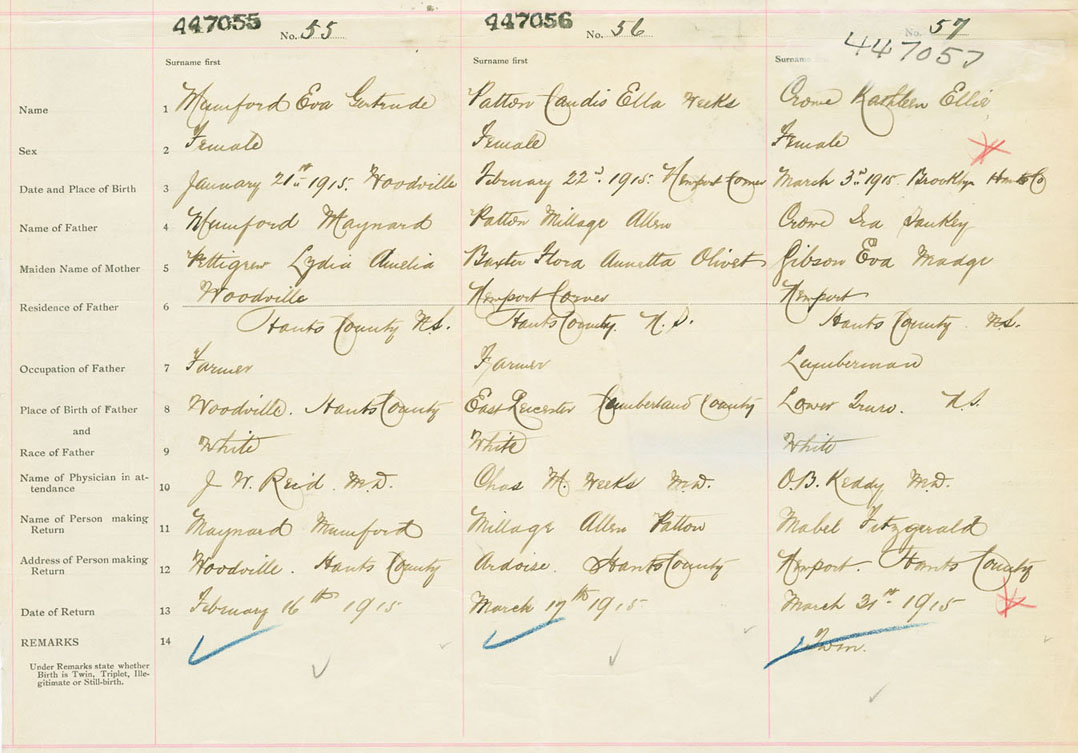 447055 No. 55 447056 No. 56 No. 57
447057
Surname first Surname first Surname first
Name 1 Mumford Eva Gertrude Patton Candis Ella Weeks Crowe Kathleen Ellie
Sex 2 Female Female Female
Date and Place of Birth 3 January 21st 1915. Woodville February 22d 1915. Newport Corner March 3rd 1915. Brooklyn Hants Co
Name of Father 4 Mumford Maynard Patton Millage Allen Crowe Ira Sankey
Maiden Name of Mother 5 Pettigrew Lydia Amelia Baxter Flora Annetta Olivet Gibson Eva Madge
Residence of Father 6 Woodville Newport Corner Newport
Hants County N.S. Hants County N.S. Hants County N.S.
Occupation of Father 7 Farmer Farmer Lumberman
Place of Birth of Father 8 Woodville. Hants County East Leicester Cumberland County Lower Truro. N.S.
and
Race of Father 9 White White White
Name of Physician in at-
tendance 10 J. W. Reid M.D. Chas M. Weeks M.D. O.B. Keddy M.D.
Name of Person making
Return 11 Maynard Mumford Millage Allen Patton Mabel Fitzgerald
Address of Person making
Return 12 Woodville. Hants County Ardoise. Hants County Newport. Hants County
Date of Return 13 February 16th 1915 March 17th 1915 March 31st 1915
REMARKS 14 Twin.
Under Remarks state whether
Birth is Twin, Triplet, Ille-
gitimate or Still-birth.